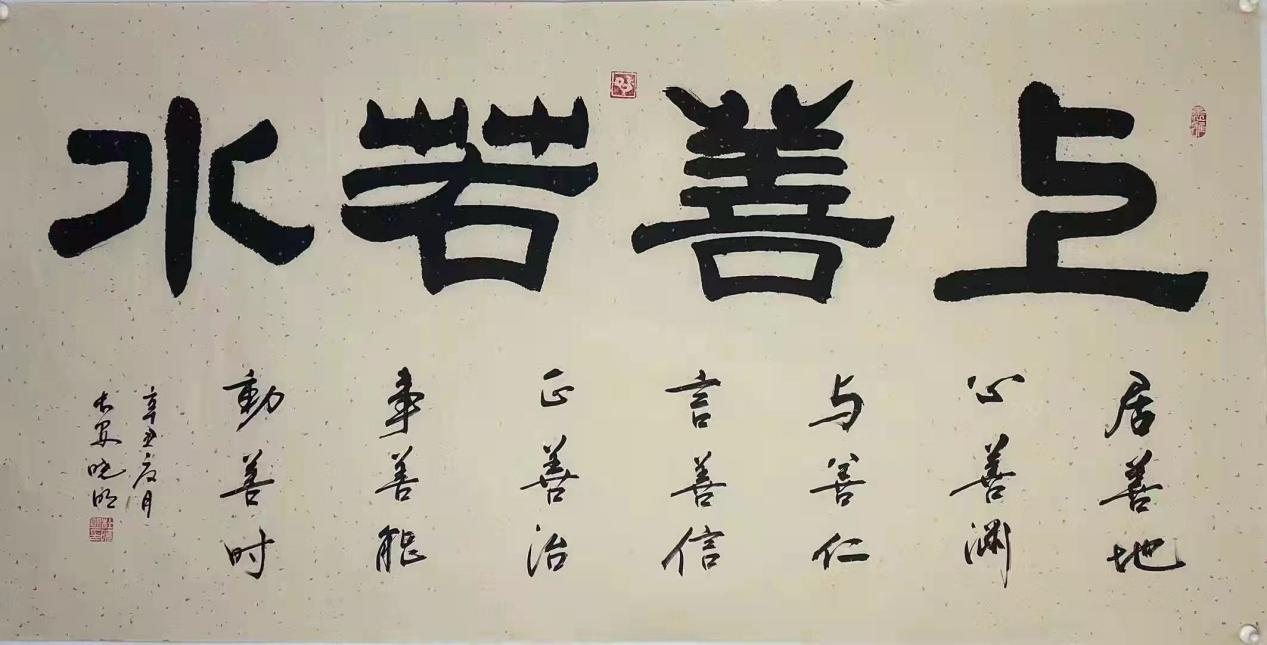 上善若水
居善地
心善渊
与善仁
言善信
正善治
事善能
动善时
辛丑夏月
晓明